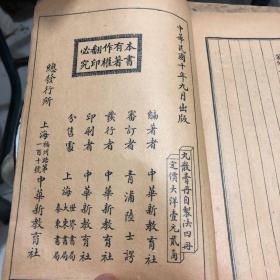 中華民國十年九月出版
本書
有著
作權
翻印
必究
丸散膏丹自製法四冊
定價大洋壹元貳角
編著者 中華新教育社
審訂者 青浦陸士諤
發行者 中華新教育社
印刷者 中華新教育社
分售處 上海 世界書局 大東書局 泰東書局
總發行所 上海福州路第一百十號 中華新教育社